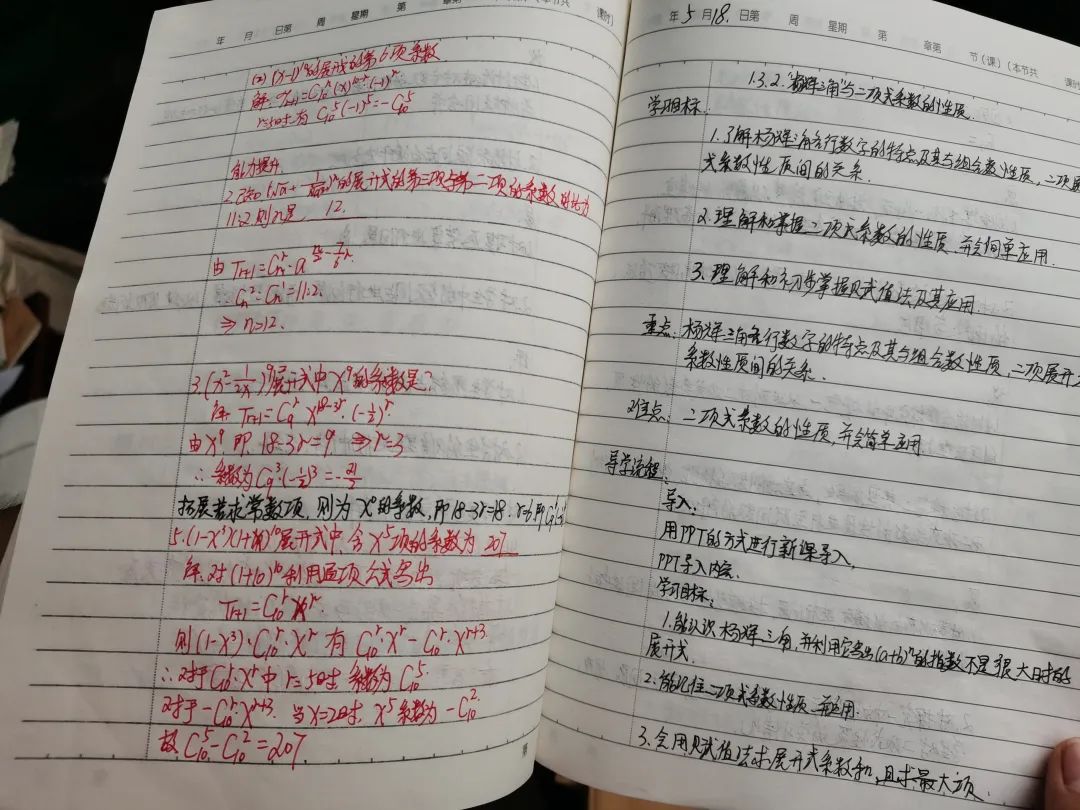 年 月 日第 周 星期 第 章第 课时)
(2) (x-1)¹⁰的展开式的第6项系数
解: Tr+1=C₁₀ʳ(x)¹⁰⁻ʳ·(-1)ʳ
r=5时有 C₁₀⁵(-1)⁵=-C₁₀⁵
能力提升.
的展开式的第三项与第二项的系数的比为
11:2 则n是 12.
由 Tr+1=Cₙʳ·a
∴Cₙ²:Cₙ¹=11:2.
⇒ n=12.
3.(x²-1/2x)⁹展开式中x⁹的系数是?
解 Tr+1=C₉ʳ x¹⁸⁻³ʳ·(-1/2)ʳ
由x⁹, 即 18-3r=9 ⇒r=3
∴系数为C₉³·(-1/2)³=-21/2
拓展若求常数项, 则为x⁰的系数, 即18-3r=
5.(1-x³)(1+x)¹⁰展开式中, 含x⁵项的系数为 207
解: 对(1+
利用通项公式写出
Tr+1=C₁₀ʳ xʳ.
则(1-x³)·C₁₀ʳ·xʳ 有 C₁₀ʳ·xʳ-C₁₀ʳ·xʳ⁺³.
∴对于C₁₀ʳ·xʳ中 r=5时 系数为C₁₀⁵.
对于-C₁₀ʳ·xʳ⁺³. 当x=2时, x⁵系数为-C₁₀².
故C₁₀⁵-C₁₀²=207
年 5 月 18. 日第 周 星期 第 章第 节(课)(本节共 课时
1.3.2."杨辉三角"与二项式系数的性质.
学习目标:
1.了解杨辉三角各行数字的特点及其与组合数性质,二项展
式系数性质间的关系.
2.理解和掌握二项式系数的性质,并会简单应用.
3.理解和初步掌握赋值法及其应用.
重点: 杨辉三角各行数字的特点及其与组合数性质,二项展开式
系数性质间的关系.
难点: 二项式系数的性质,并会简单应用.
导学流程:
导入:
用PPT的方式进行新课导入,
PPT导入内容.
学习目标:
1.能认识杨辉三角,并利用它写出(a+b)ⁿ的指数不是很大时的
展开式.
2.能记住二项式系数性质并应用.
3.会用赋值法求展开式系数和,且求最大项.